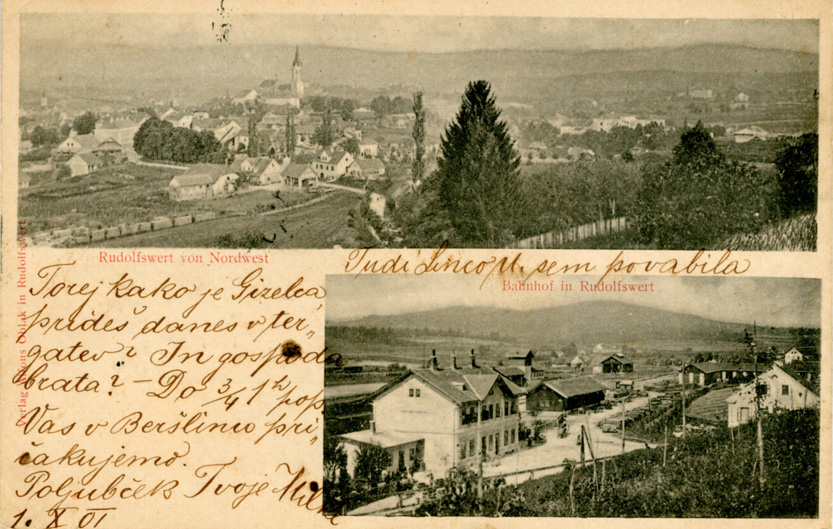 Rudolfswert von Nordwest
Tudi Linco M. sem povabila
Bahnhof in Rudolfswert
Verlag in Rudolfswert
Torej kako je Gizelca,
prideš danes v ter-
gatev? In gospoda
brata? – Do 3/4 1h pop.
Vas v Beršlinu pri-
čakujemo.
Poljubček Tvoje
1. X 01